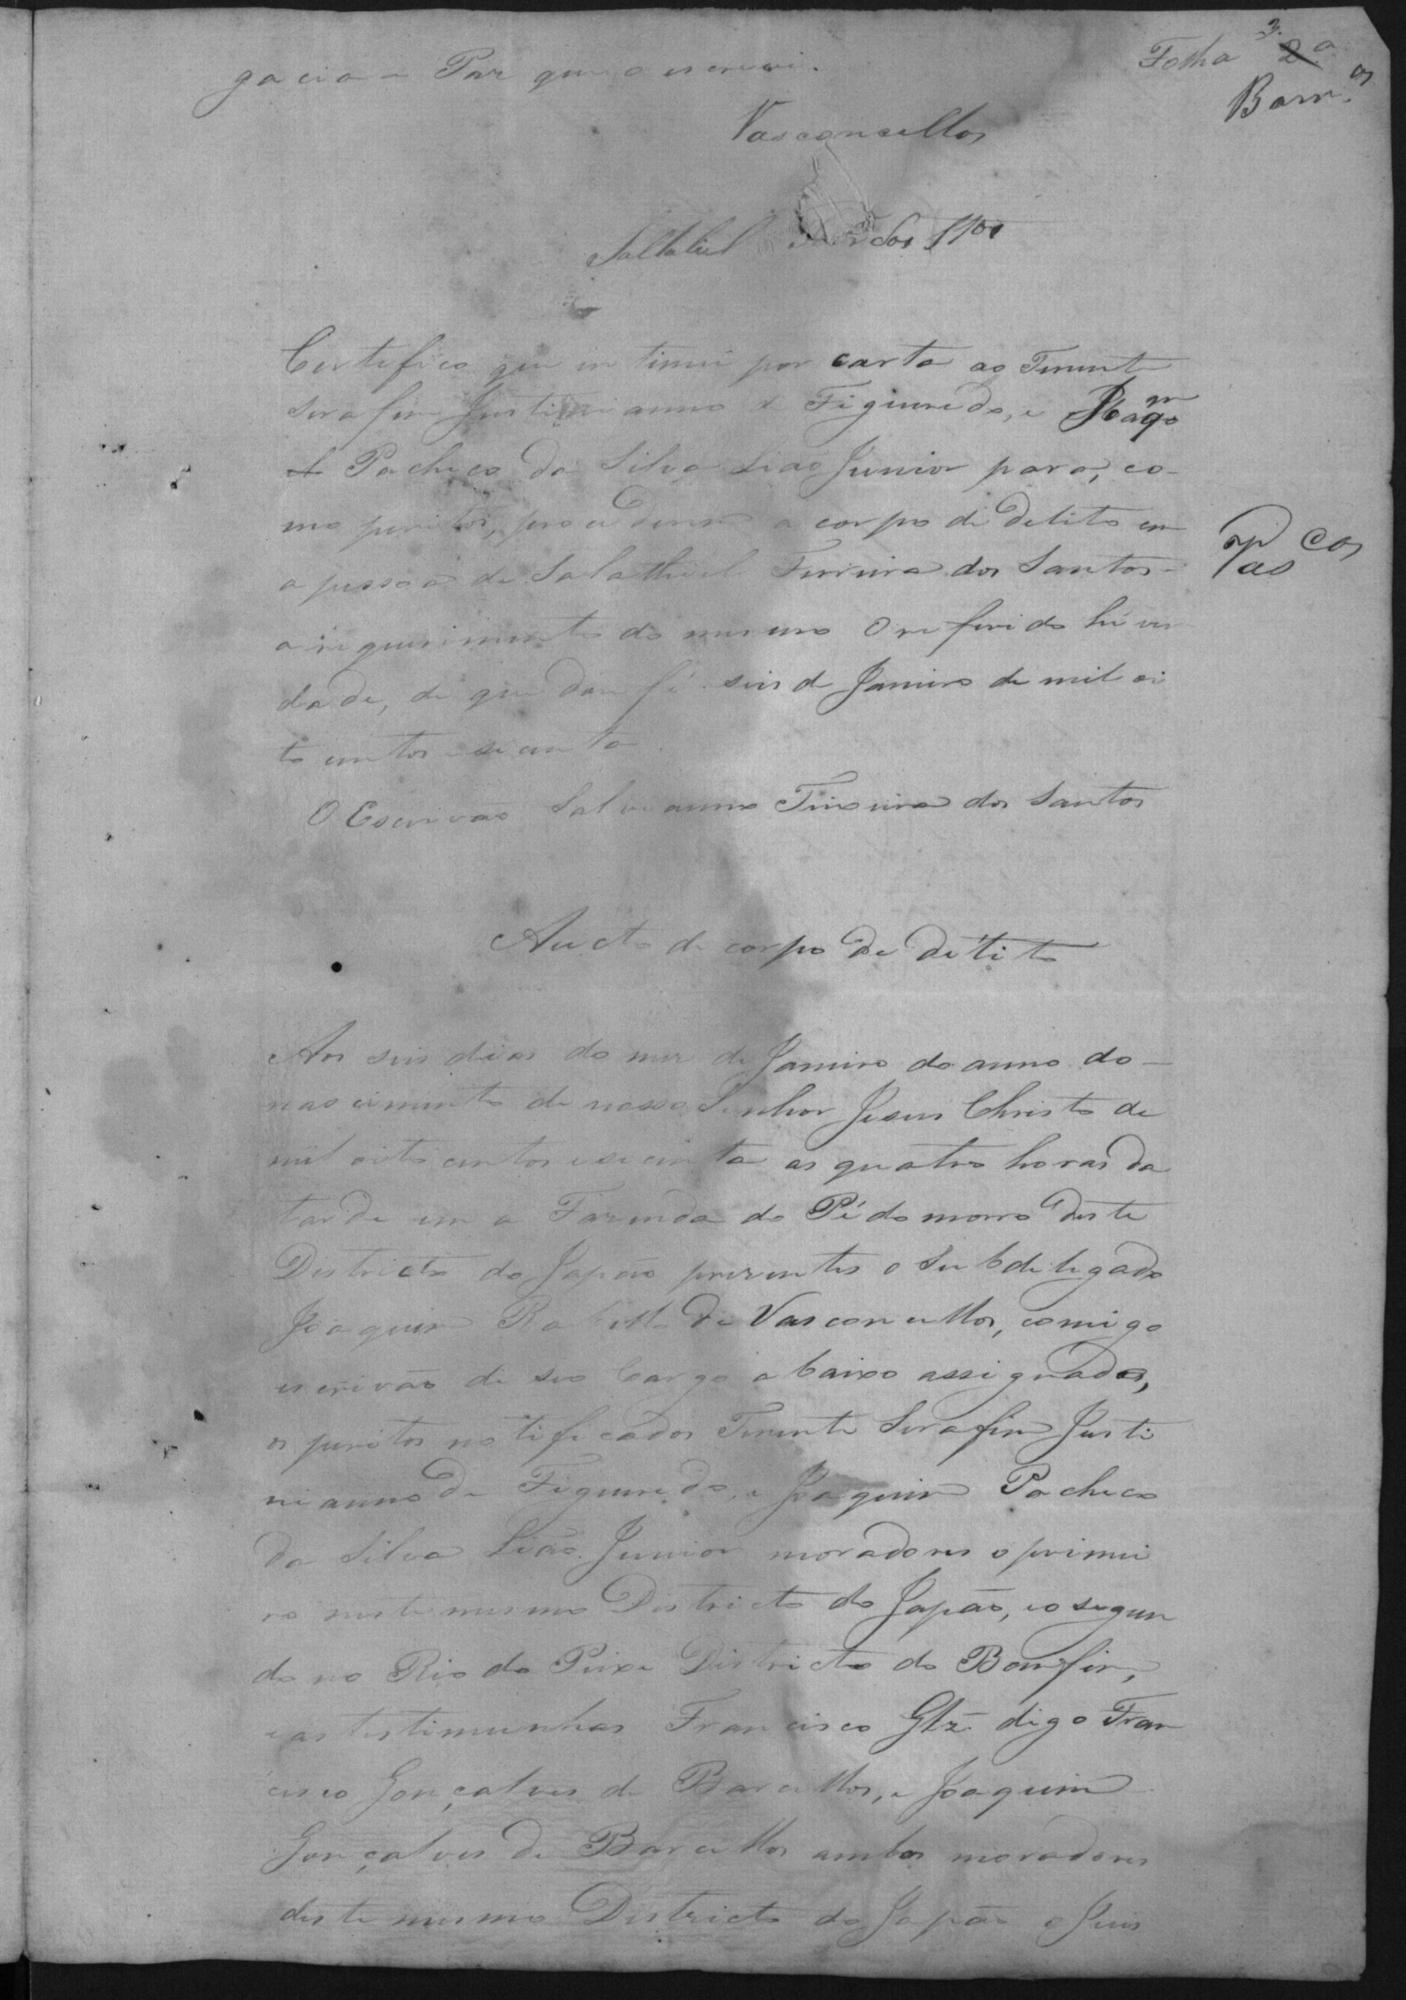 Folha 3ª
Barr.os
gacia - Paz que o escrevi.
Vasconcellos
Sallatiel dos S.tos
Certifico que intimei por carta ao Tenente
Serafim Justinianno de Figueredo, e Joaqm
Pacheco da Silva Lião Junior para, co-
mo peritos, procederem a corpo de delito em
a pessoa de Salathiel Ferreira dos Santos -
a requerimento do mesmo O referido hé ver
dade, de que dou fé seis de Janeiro de mil oi
to centos secenta
O Escrivão Salvianno Teixeira dos Santos
Aucto de corpo de delito
Aos seis dias do mez de Janeiro do anno do -
nascimento de nosso Senhor Jesus Christo de
mil oito centos e secenta as quatro horas da
tarde em a Fazenda do Pé do morro deste
Districto do Japão prezentes o Subdelegado
Joaquim Rabello de Vasconcellos, comigo
escrivão de seo Cargo abaixo assignado,
os peritos notificados Tenente Serafim Justi
nianno de Figueredo, e Joaquim Pacheco
da Silva Lião Junior moradores o primei
ro neste mesmo Districto do Japão, e o segun
do no Rio do Peixe Districto do Bomfim,
e as testimunhas Francisco Glz digo Fran
cisco Gonçalves de Barcellos, e Joaquim
Gonçalves de Barcellos ambos moradores
deste mesmo Districto do Japão o Juis